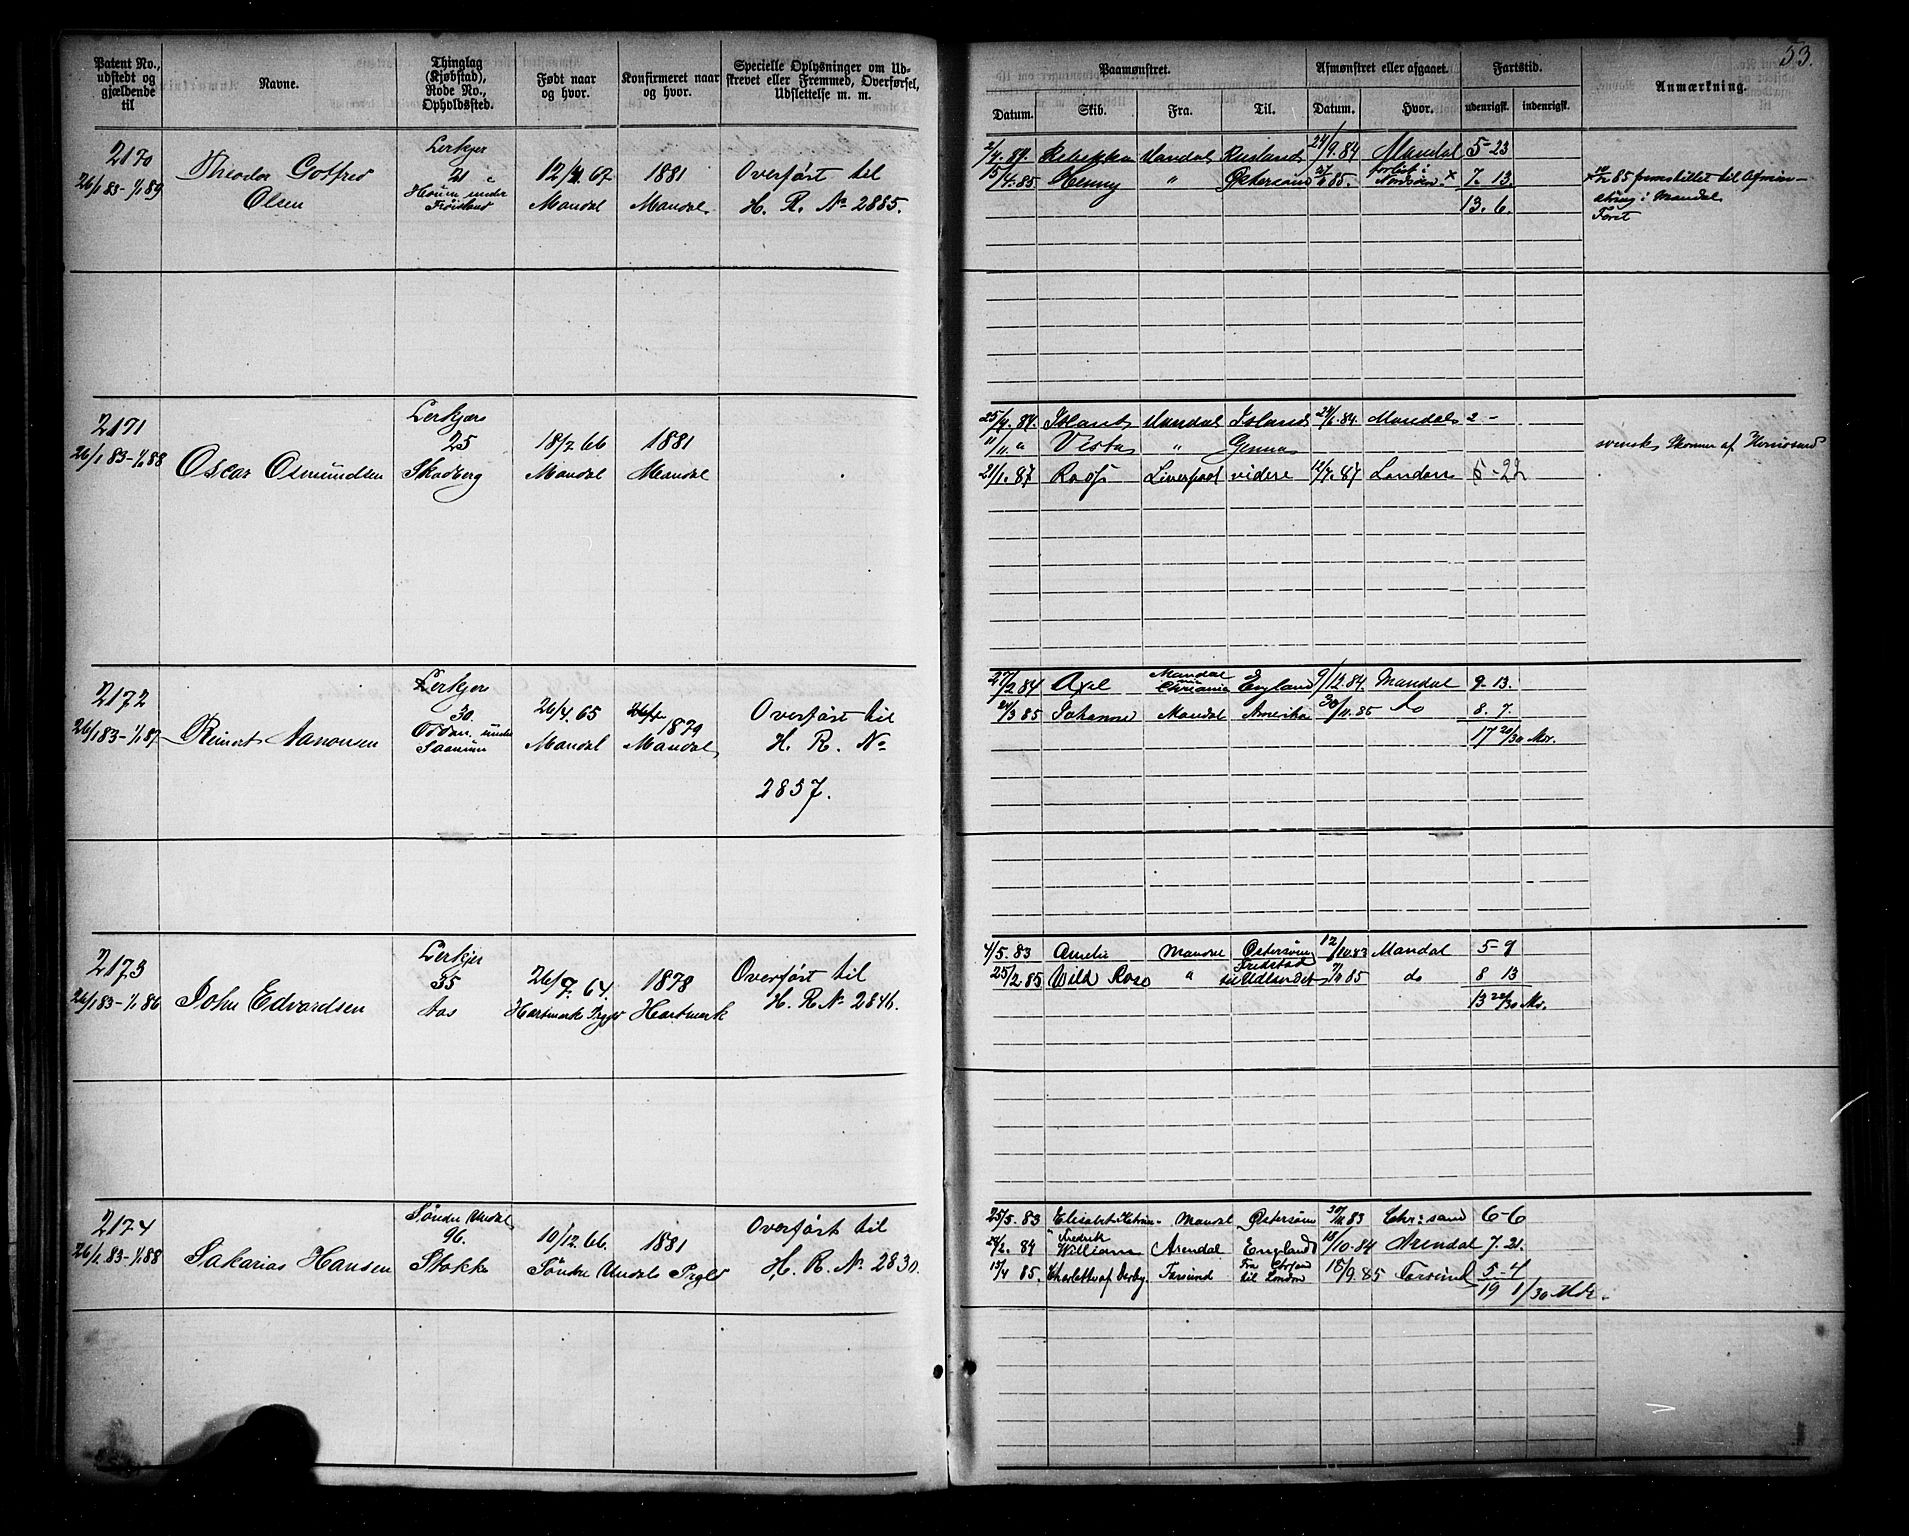 53.
Patent No., udstedt og gjældende til
Navne.
Thinglag (Kjøbstad), Rode No., Opholdssted.
Født naar og hvor.
Konfirmeret naar og hvor.
Specielle Oplysninger om Udskrevet eller Fremmed, Overførsel, Udslettelse m. m.
Paamønstret.
Afmønstret eller afgaaet.
Fartstid.
Anmærkning.
Datum. Skib. Fra. Til. Datum. Hvor. udenrigsk. indenrigsk.
2170
26/1 83 - 1/1 89
Theodor Gotfred
Olsen
Lerkjer
21
under
12/4 67
Mandal
1881
Mandal
Overført til
H. R. No 2885.
2/4. 84. Rebekka Mandal Rusland 24/9. 84 Mandal 5-23
15/4. 85 Henny " Østersøen 85. forlist i Nordsøen x 7. 13
13. 6.
x 85 fremstillet til Afmøn-
string i Mandal
2171
26/1 83 - 1/1 88
Oscar Osmundsen
Lerkjær
25
Skadberg
18/7 66
Mandal
1881
Mandal
25/4. 84. Island Mandal Island 84. Mandal 2 -
11/11 " Vesta " Genua
svensk
21/1. 87 Liverpool videre 12/7. 87 London 5-22
2172
26/1 83 - 1/1 87
Reinert Aanonsen
Lerkjer
30.
under
26/4. 65
Mandal
1879
Mandal
Overført til
H. R. No
2837.
27/2 84 Axel Mandal England 9/12. 84. Mandal 9. 13.
3 85 Johanne Mandal Amerika 30/11. 85 do 8. 7.
17 20/30 Mdr.
2173
26/1 83 - 1/1 86
John Edvardsen
Lerkjer
35
Aas
26/9. 64.
Hartmark Prgld
1878
Hartmark
Overført til
H. R. No 2846.
4/5. 83 Amelie Mandal Østersøen 12/10. 83 Mandal 5-9
Fredrikstad
25/2 85 Wild Rose " til Udlandet 85 do 8 13
13 22/30 Md.
2174
26/1. 83 - 1/1. 88
Sakarias Hansen
Søndre Undal
96.
Stokke
10/12. 66.
Søndre Undals Prgld
1881
Overført til
H. R. No 2830.
25/5. 83 Mandal Østersøen 83 Chr:sand 6-6
Fredrik
2. 84 William Arendal England 18/10. 84 Arendal 7. 21.
15/4 85. Charlotte af Derby Farsund Fra til London 18/9. 85 Farsund 5-4
19 1/30 Mdr.